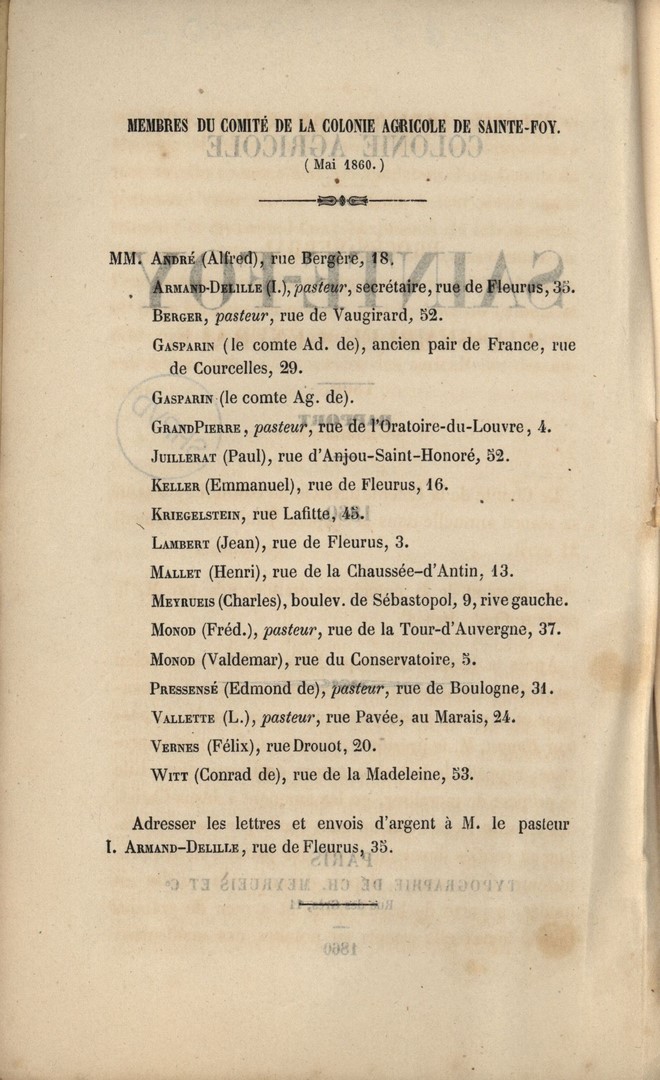 MEMBRES DU COMITÉ DE LA COLONIE AGRICOLE DE SAINTE-FOY.
(Mai 1860.)
MM. ANDRÉ (Alfred), rue Bergère, 18.
ARMAND-DELILLE (I.), pasteur, secrétaire, rue de Fleurus, 35.
BERGER, pasteur, rue de Vaugirard, 52.
GASPARIN (le comte Ad. de), ancien pair de France, rue
de Courcelles, 29.
GASPARIN (le comte Ag. de).
GRANDPIERRE, pasteur, rue de l'Oratoire-du-Louvre, 4.
JUILLERAT (Paul), rue d'Anjou-Saint-Honoré, 52.
KELLER (Emmanuel), rue de Fleurus, 16.
KRIEGELSTEIN, rue Lafitte, 45.
LAMBERT (Jean), rue de Fleurus, 3.
MALLET (Henri), rue de la Chaussée-d'Antin, 13.
MEYRUEIS (Charles), boulev. de Sébastopol, 9, rive gauche.
MONOD (Fréd.), pasteur, rue de la Tour-d'Auvergne, 37.
MONOD (Valdemar), rue du Conservatoire, 5.
PRESSENSÉ (Edmond de), pasteur, rue de Boulogne, 31.
VALLETTE (L.), pasteur, rue Pavée, au Marais, 24.
VERNES (Félix), rue Drouot, 20.
WITT (Conrad de), rue de la Madeleine, 53.
Adresser les lettres et envois d'argent à M. le pasteur
I. ARMAND-DELILLE, rue de Fleurus, 35.